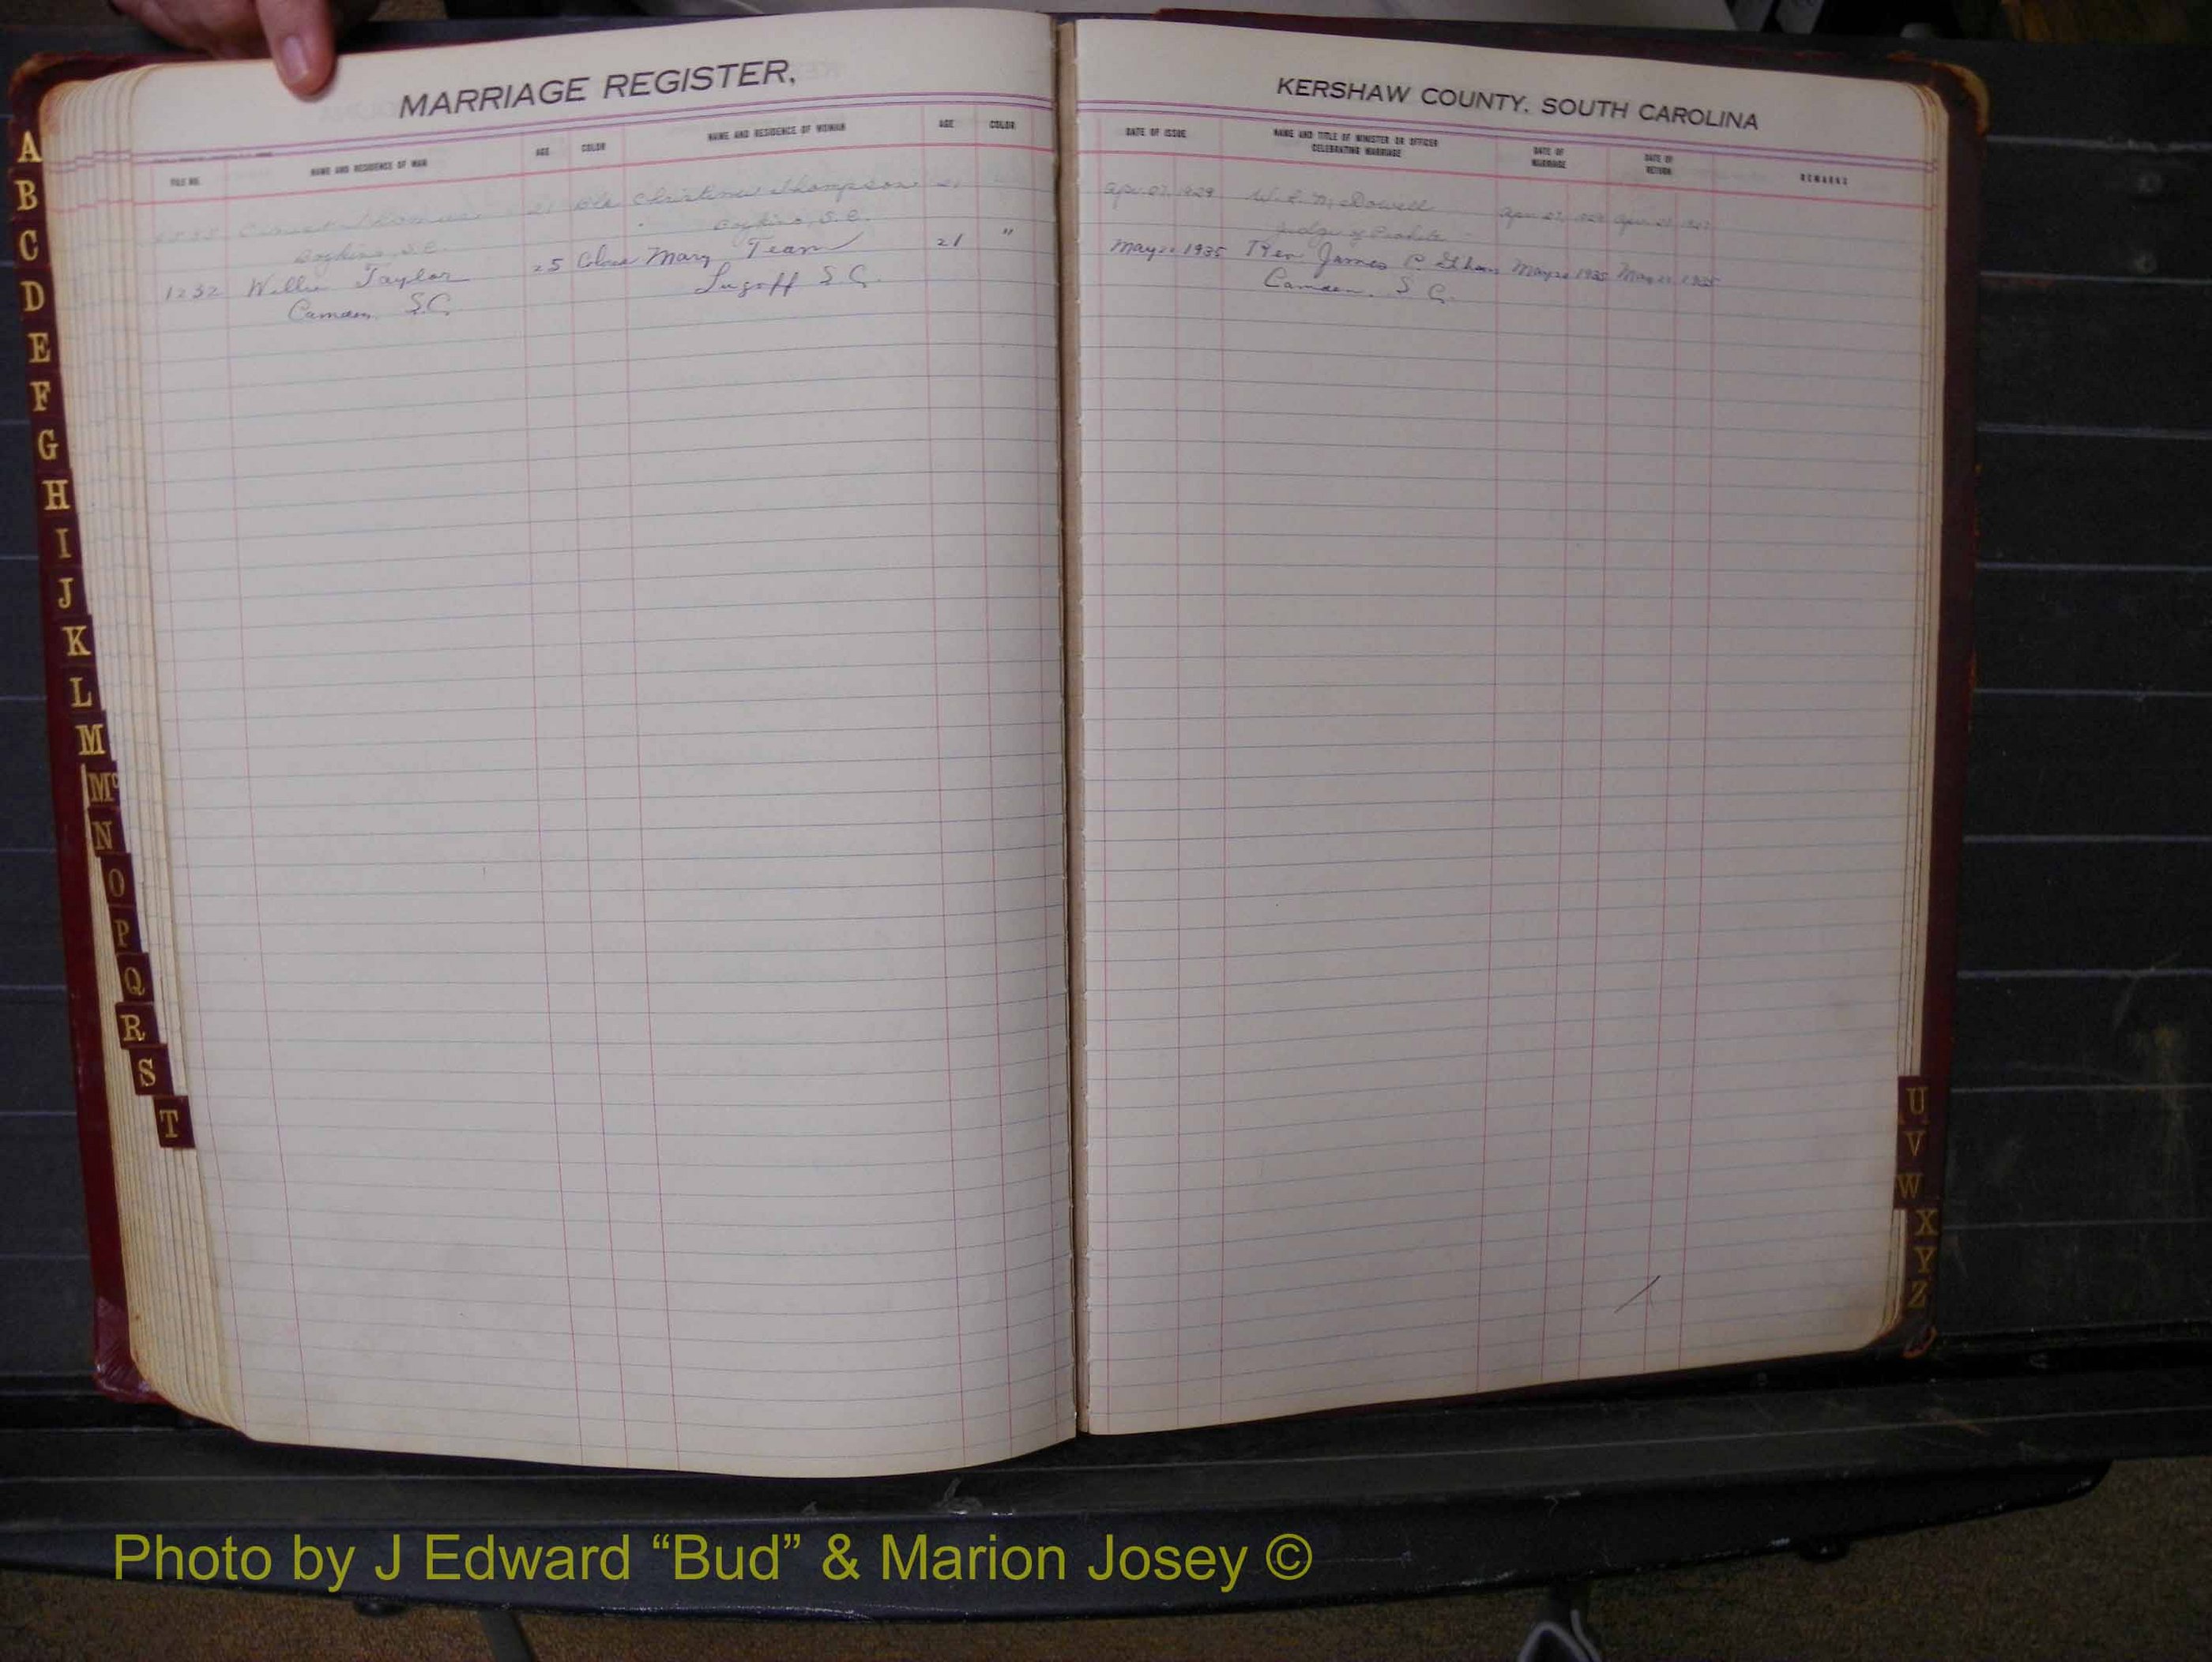 MARRIAGE REGISTER,
KERSHAW COUNTY, SOUTH CAROLINA
FILE NO.
NAME AND RESIDENCE OF MAN
AGE
COLOR
NAME AND RESIDENCE OF WOMAN
AGE
COLOR
DATE OF ISSUE
NAME AND TITLE OF MINISTER OR OFFICER
CELEBRATING MARRIAGE
DATE OF
MARRIAGE
DATE OF
RETURN
REMARKS
21 Christine Thompson 21 Apr. 27, 1929 W. L. McDowell
Boykin, S.C. Boykin, S.C. Judge of Probate
1232 Willie Taylor 25 Mary Team 21 " May 1935 Rev James P. May 1935 May 1935
Camden, S.C. Lugoff S.C. Camden, S.C.
A
B
C
D
E
F
G
H
I
J
K
L
M
Mc
N
O
P
Q
R
S
T
U
V
W
X
Y
Z
Photo by J Edward “Bud” & Marion Josey ©